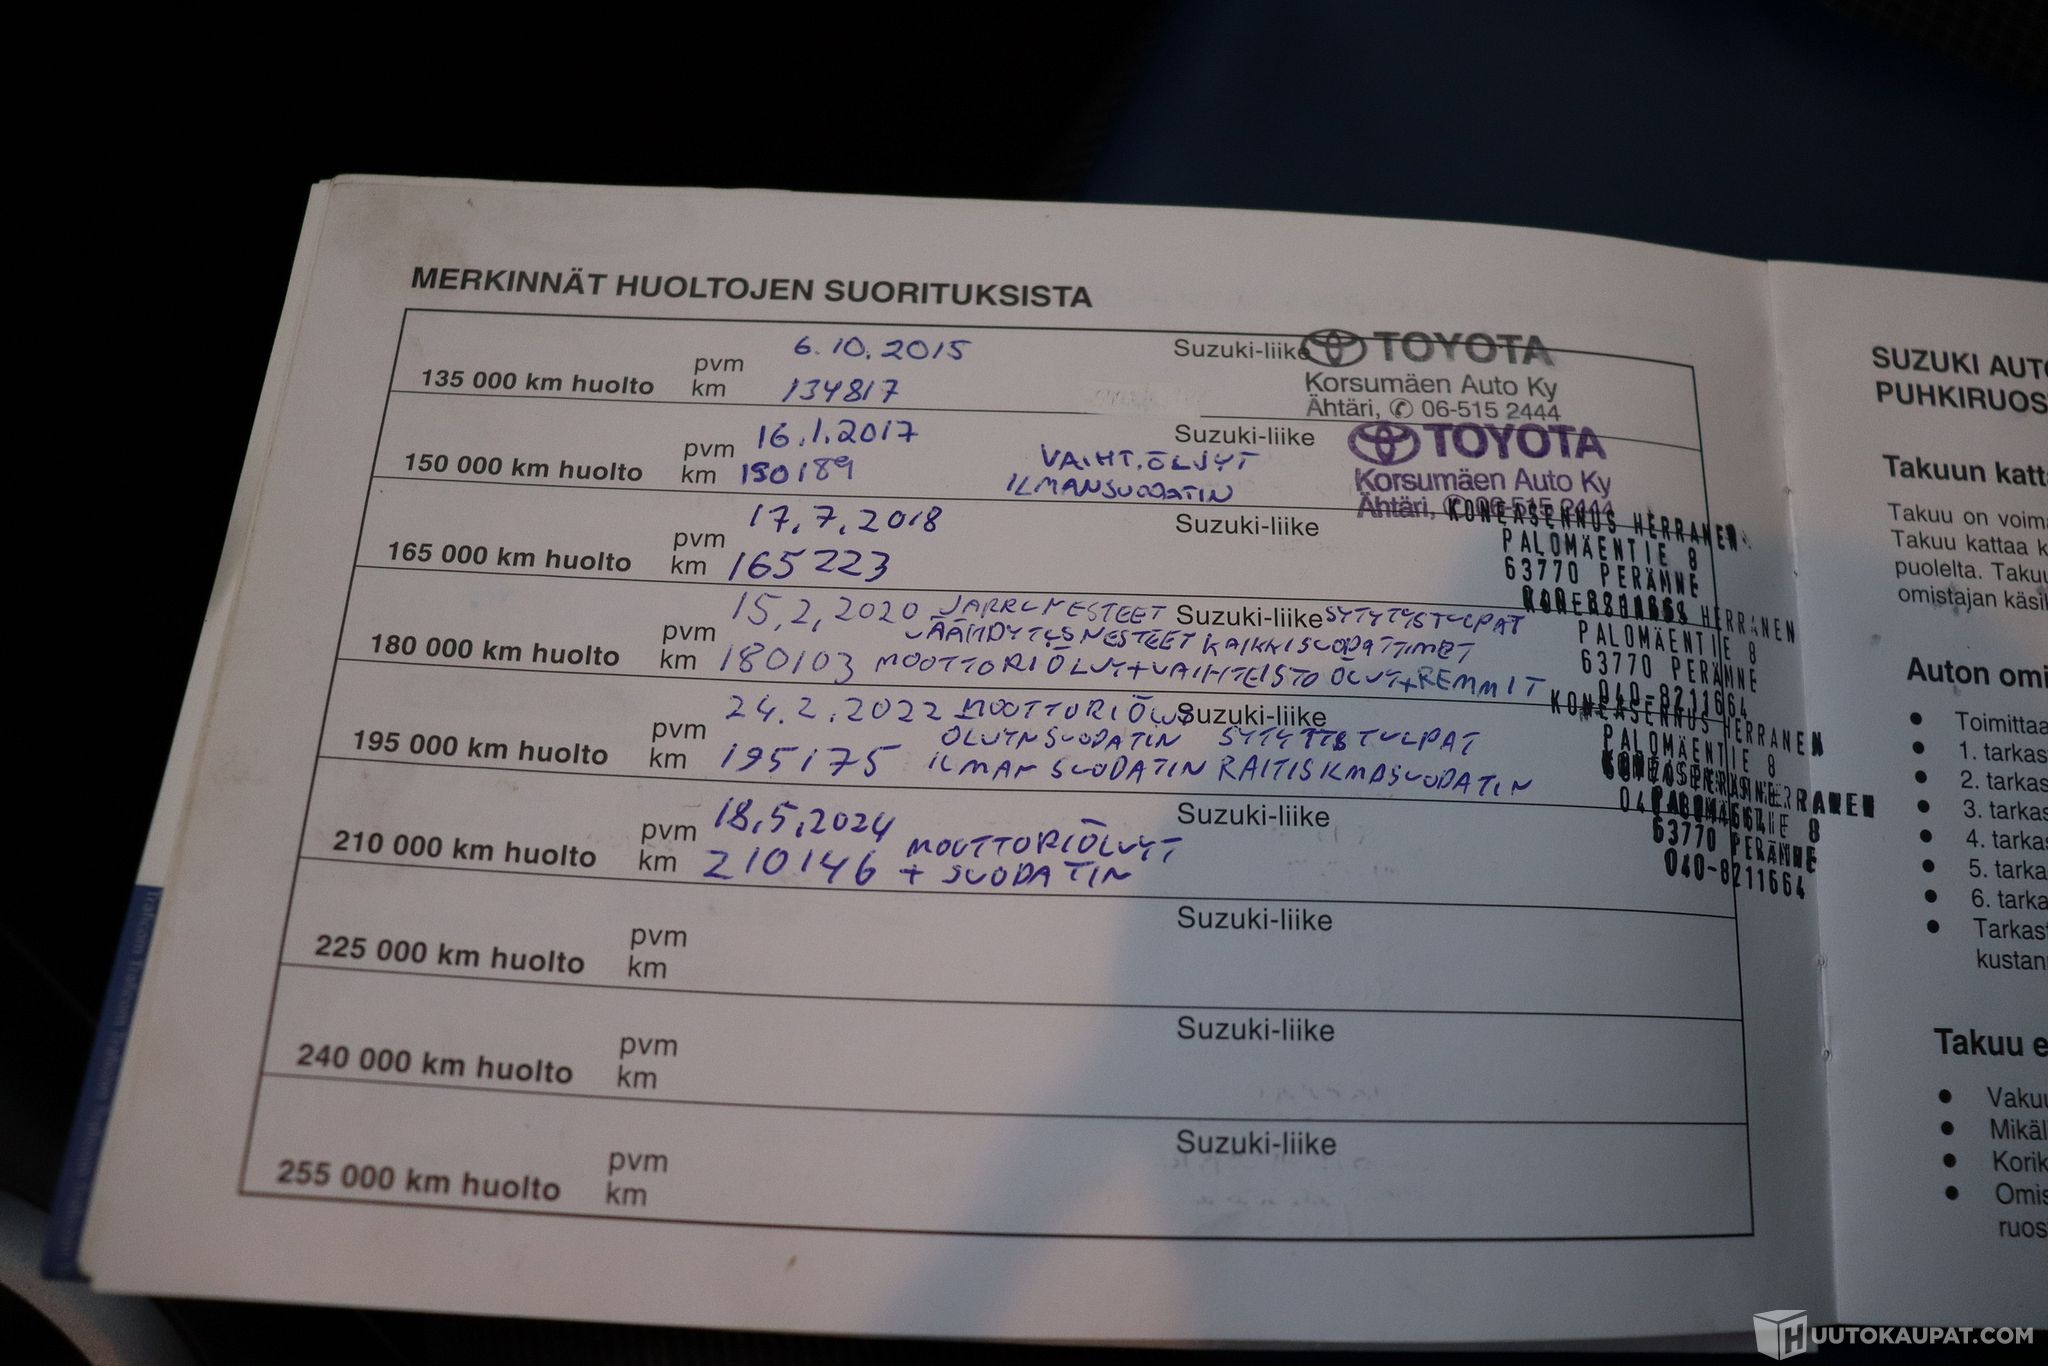 MERKINNÄT HUOLTOJEN SUORITUKSISTA
135 000 km huolto
pvm 6.10.2015
km 134817
Suzuki-liike
TOYOTA
Korsumäen Auto Ky
Ähtäri, ✆ 06-515 2444
150 000 km huolto
pvm 16.1.2017
km 150189
VAIHT.ÖLJYT
ILMANSUODATIN
Suzuki-liike
TOYOTA
Korsumäen Auto Ky
Ähtäri, ✆ 06-515 2444
165 000 km huolto
pvm 17.7.2018
km 165223
Suzuki-liike
KONEASENNUS HERRANEN
PALOMÄENTIE 8
63770 PERÄNNE
040-8211664
180 000 km huolto
pvm 15.2.2020 JARRUNESTEET SYTYTYSTULPAT
JÄÄHDYTYSNESTEET KAIKKI SUODATTIMET
km 180103 MOOTTORIÖLJYT+VAIHTEISTO ÖLJYT+REMMIT
Suzuki-liike
KONEASENNUS HERRANEN
PALOMÄENTIE 8
63770 PERÄNNE
040-8211664
195 000 km huolto
pvm 24.2.2022 MOOTTORIÖLJYT
ÖLJYNSUODATIN SYTYTYSTULPAT
km 195175 ILMANSUODATIN RAITISILMASUODATIN
Suzuki-liike
KONEASENNUS HERRANEN
PALOMÄENTIE 8
210 000 km huolto
pvm 18.5.2024
km 210146
MOOTTORIÖLJYT
+ SUODATIN
Suzuki-liike
63770 PERÄNNE
040-8211664
225 000 km huolto
pvm
km
Suzuki-liike
240 000 km huolto
pvm
km
Suzuki-liike
255 000 km huolto
pvm
km
Suzuki-liike
SUZUKI AUTO
PUHKIRUOS
Takuun katta
Takuu on voima
Takuu kattaa k
puolelta. Takuu
omistajan käsik
Auton omi
• Toimittaa
• 1. tarkas
• 2. tarkas
• 3. tarkas
• 4. tarkas
• 5. tarka
• 6. tarka
• Tarkast
kustann
Takuu e
• Vakuu
• Mikäl
• Korik
• Omis
ruost
HUUTOKAUPAT.COM